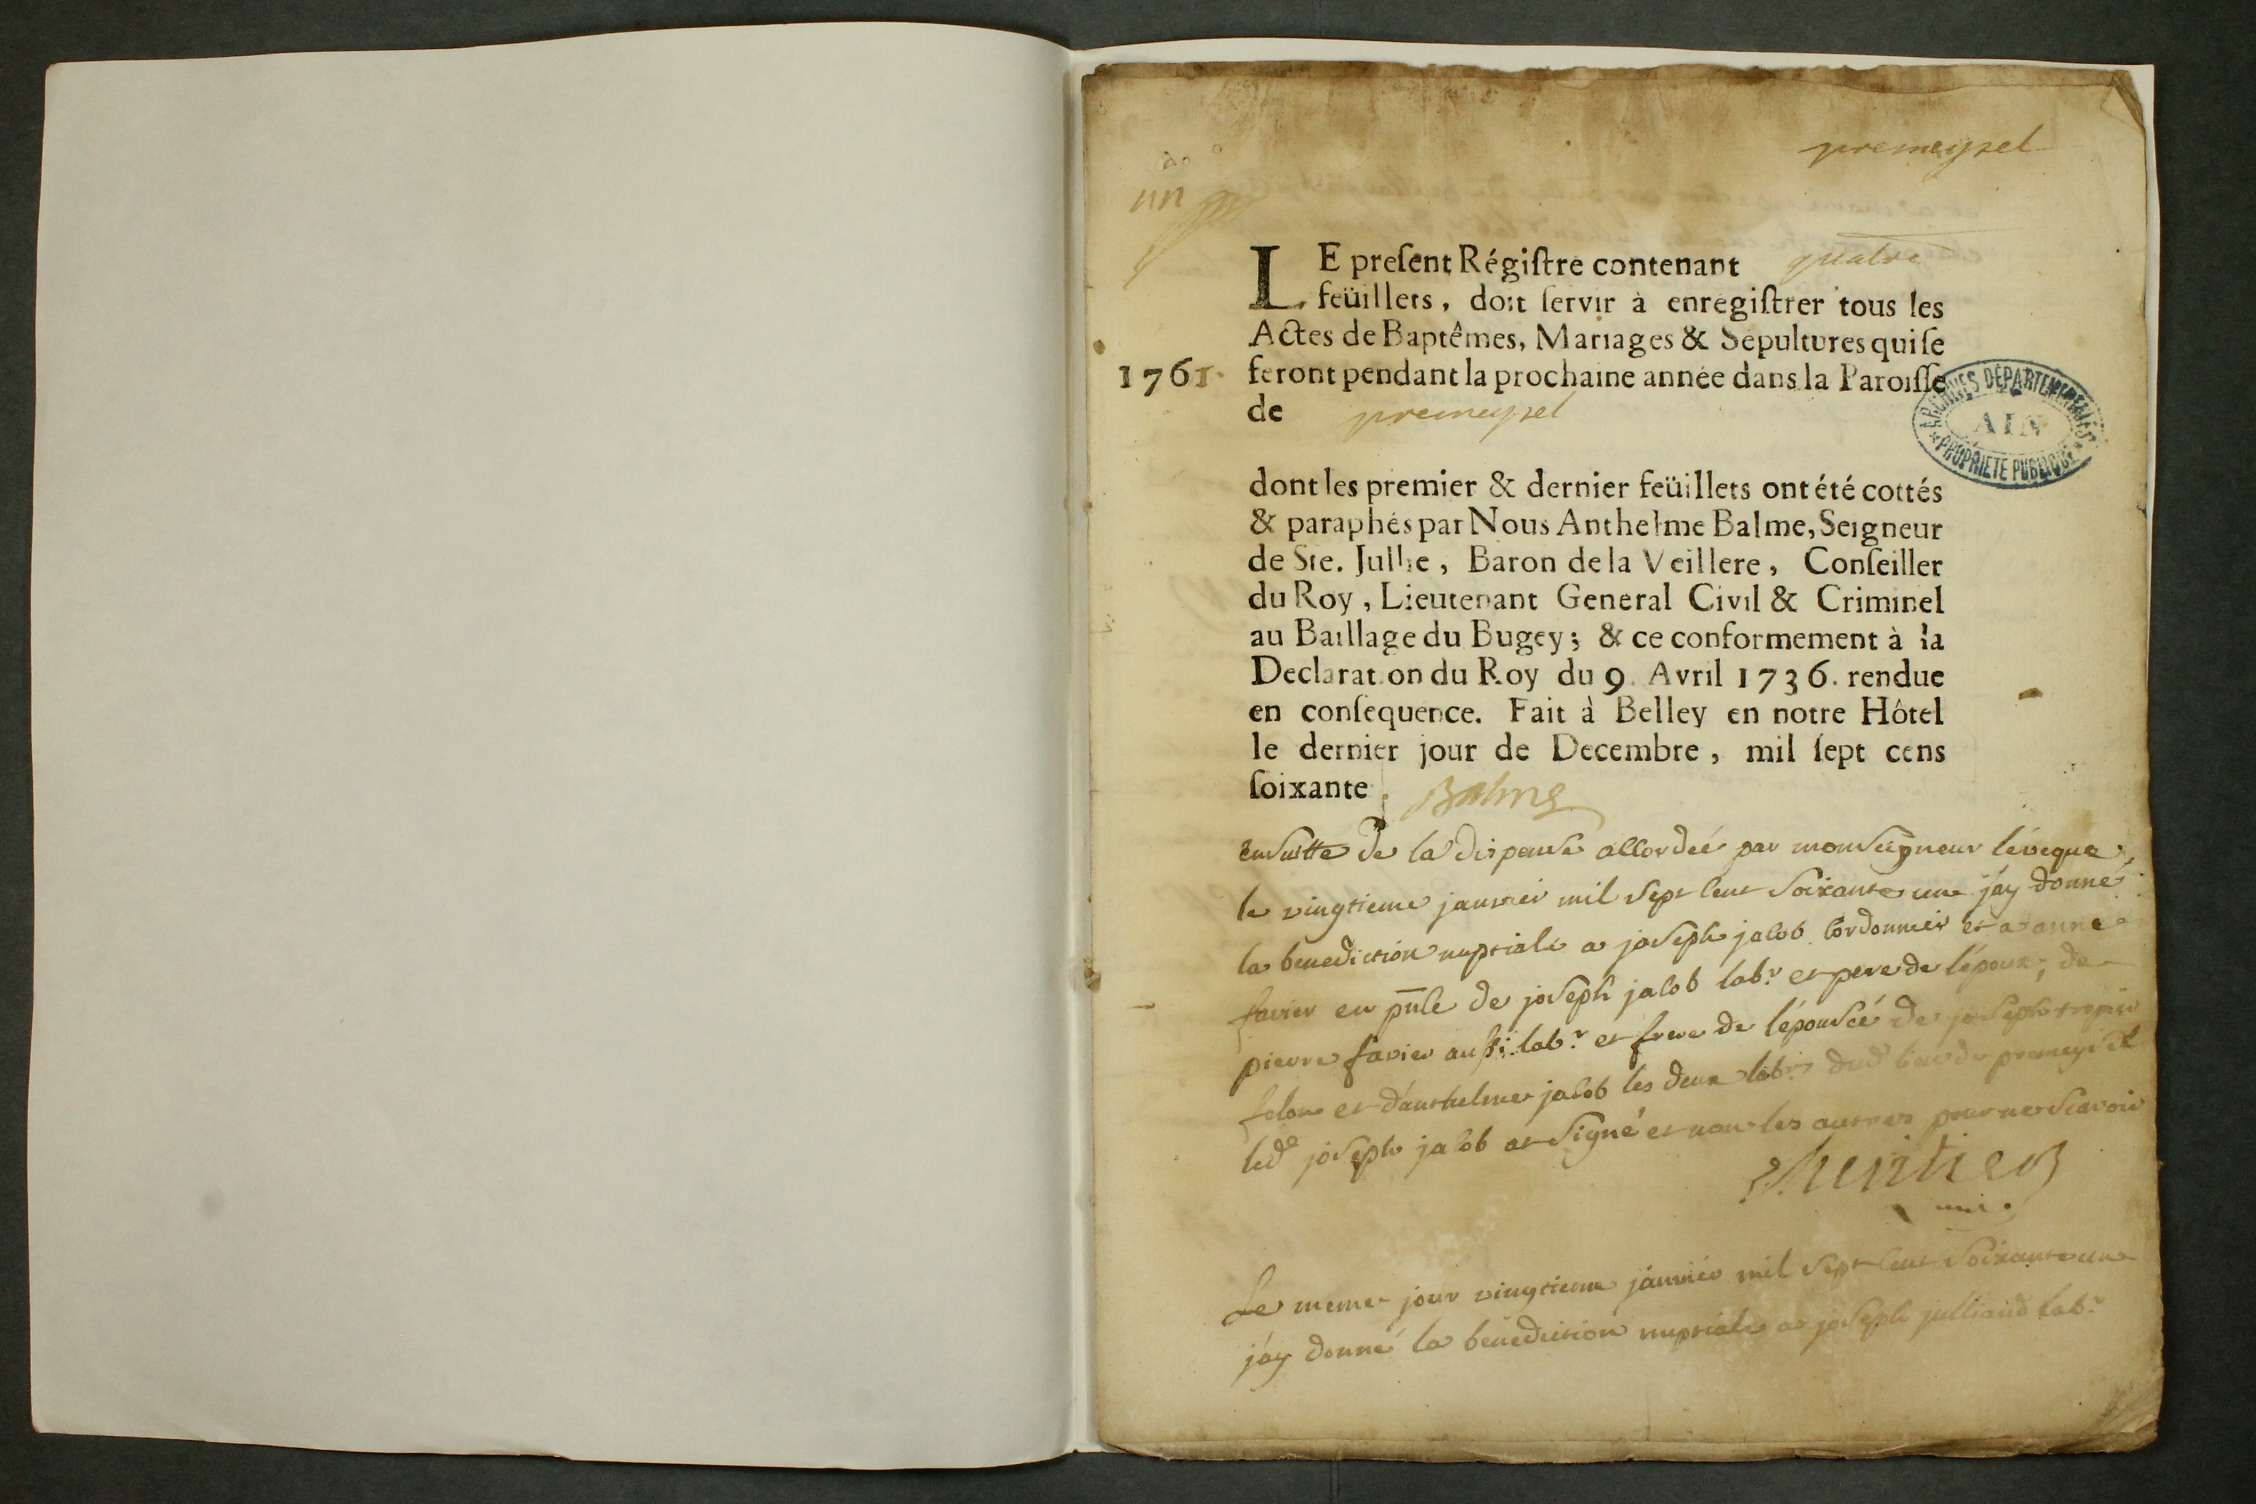 premeyzel
un
LE preſent Régiſtre contenant quatre
feüillets, doit ſervir à enregiſtrer tous les
Actes de Baptêmes, Mariages & Sepultures qui ſe
1761. feront pendant la prochaine année dans la Paroiſſe
de premeyzel
ARCHIVES DÉPARTEMENTALES
AIN
PROPRIÉTÉ PUBLIQUE
dont les premier & dernier feüillets ont été cottés
& paraphés par Nous Anthelme Balme, Seigneur
de Ste. Jullie, Baron de la Veillere, Conſeiller
du Roy, Lieutenant General Civil & Criminel
au Baillage du Bugey; & ce conformement à la
Declaration du Roy du 9. Avril 1736. rendue
en conſequence. Fait à Belley en notre Hôtel
le dernier jour de Decembre, mil ſept cens
ſoixante. Balme
ensuitte de la dispense accordée par monseigneur léveque
le vingtieme janvier mil sept cent soixante une j'ay donné
la benediction nuptiale a joseph jacob cordonnier et a anne
favier en pnce de joseph jacob labr et pere de l'époux, de
pierre favier aussi labr et frere de l'épousée de joseph
et d'anthelme jacob les deux labrs dud lieu de premeyzel
led joseph jacob at signé et non les autres pour ne scavoir
Le meme jour vingtieme janvier mil sept cent soixante une
j'ay donné la benediction nuptiale a joseph julliand labr